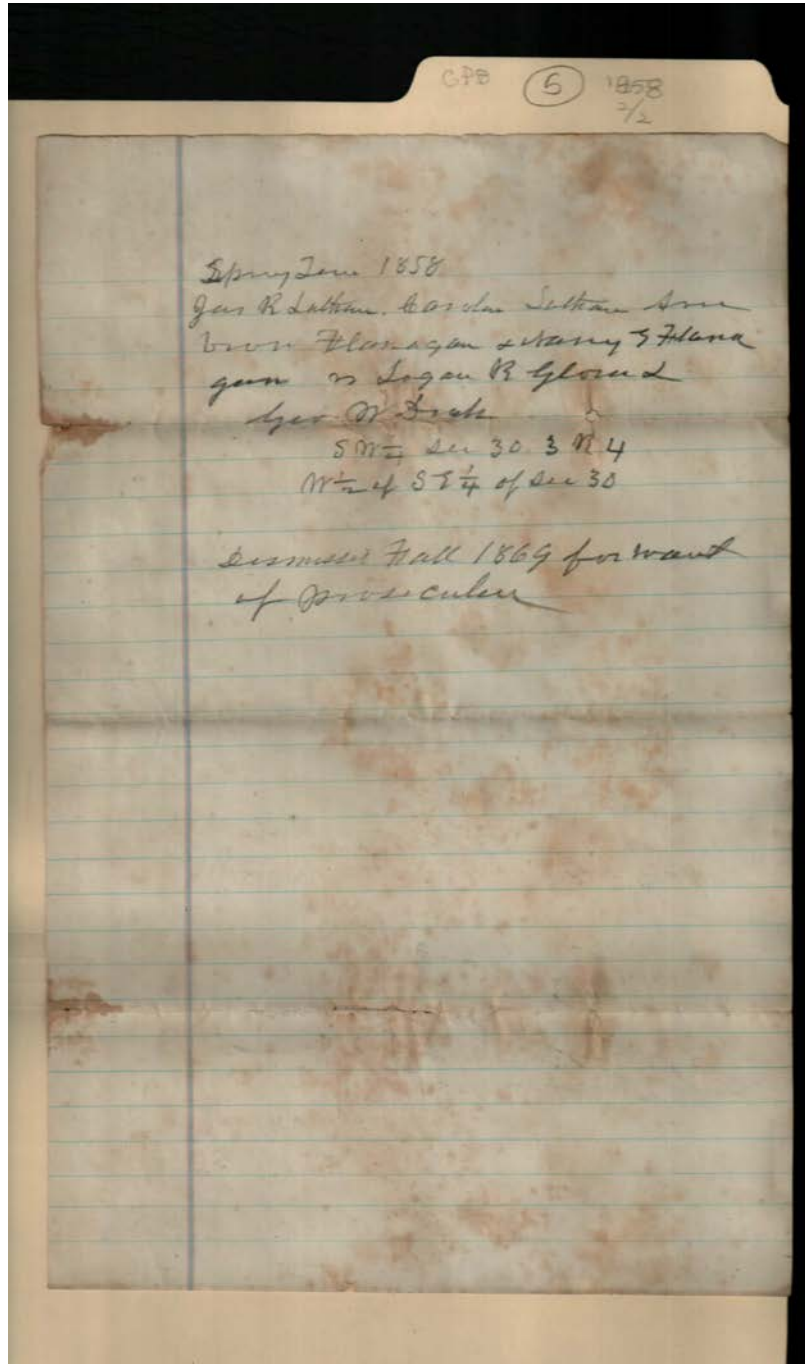 GPB 5 1858
2/2
Spring Term 1858
Jas R Latham. Latham
Flanagan & Nancy E Flana
gan vs Logan R Glover &
Geo W Drak
S W ¼ Sec 30. 3 R 4
W ½ of S E ¼ of Sec 30
Dismissed Fall 1869 for want
of prosecution